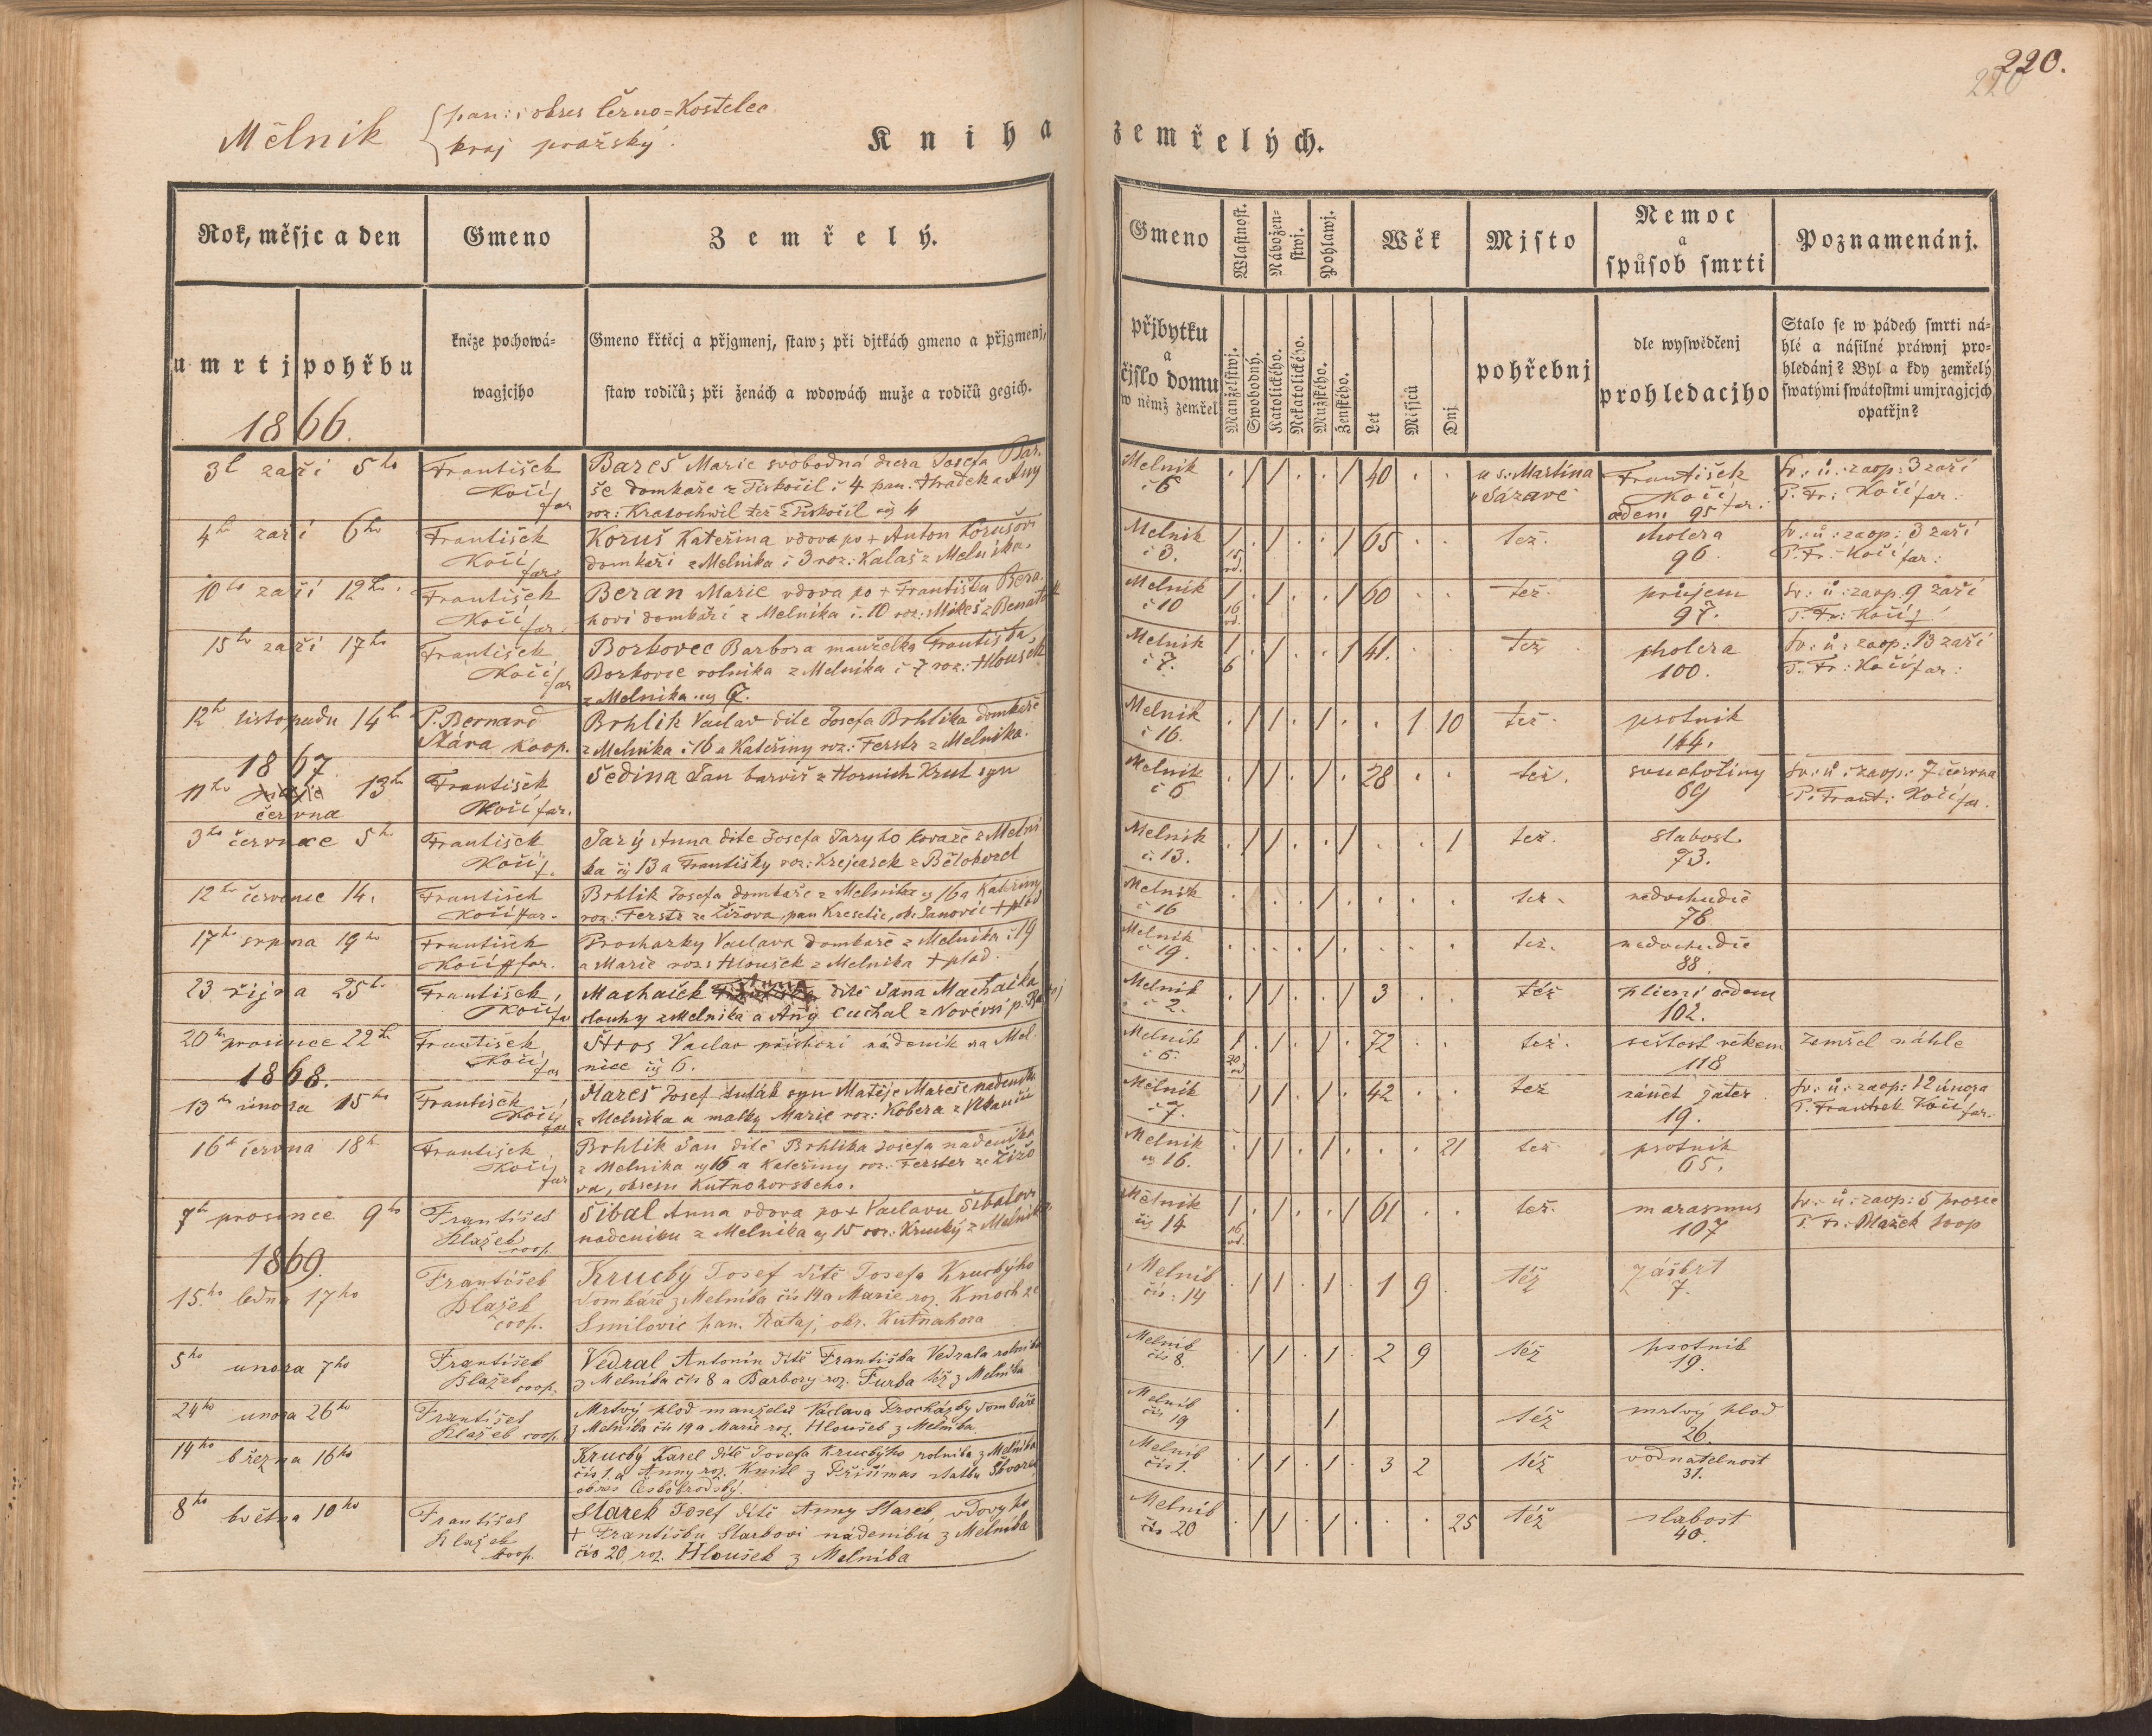 220.
220
Mělnik { pan: i okres Černo=Kostelec
kraj pražský.
Kniha zemřelých.
Rok, měsjc a den
Gmeno
Zemřelý.
umrtj
pohřbu
kněze pochowá-
wagjcjho
Gmeno křtěcj a přjgmenj, staw; při djtkách gmeno a přjgmenj,
staw rodičů; při ženách a wdowách muže a rodičů gegich.
Gmeno
přjbytku
a
čjslo domu
w němž zemřel
Wlastnost.
Manželstwj.
Swobodný.
Nábožen-
stwj.
Katolického.
Nekatolického.
Pohlawj.
Mužského.
Ženského.
Wěk
Let
Měsjců
Dnj
Mjsto
pohřebnj
Nemoc
a
spůsob smrti
dle wyswědčenj
prohledacjho
Poznamenánj.
Stalo se w pádech smrti ná-
hlé a násilné práwnj pro-
hledánj? Byl a kdy zemřelý
swatými swátostmi umjragjcjch
opatřjn?
1866.
3l zaří 5ho
František
Kočí
far
Bareš Marie svobodná dcera Josefa Bar.
še domkaře z Piskočil č 4 pan. Hradek a Any
roz: Kratochwil též z Piskočil čís 4
Melnik
č 6
. / / . . / 40 . .
u s: Martina
v Sázavě
František
Kočí far.
edem 95
sv: ú: zaop: 3 zaří
P. Fr: Kočí far.
4ho zaří 6ho
František
Kočí
far:
Koruš Kateřina vdova po + Anton Korušovi
domkaři z Melnika č 3 roz: Kalaš z Melnika.
Melnik
č 3.
1 . / . . / 65 . .
15
rd.
též.
cholera
96.
sv: ú: zaop: 3 zaří
P. Fr: Kočí far:
10ho zaří 12ho.
František
Kočí far.
Beran Marie vdova po + Františku Bera.
novi domkáři z Melnika č. 10 roz: Mikeš z Benátek
Melnik
č 10
1 . / . . / 60 . .
16
rd.
též.
průjem
97.
sv: ú: zaop. 9 zaří
P. Fr: Kočí f
15ho zaří 17ho
František
Kočí
far
Borkovec Barbora manželka Františka
Borkovce rolnika z Melnika č 7 roz: Hloušek
z Melnika čís 7.
Melnik
č 7.
1 . / . . 1 41. . .
6
též
cholera
100.
sv: ú: zaop: 13 zaří
P. Fr: Kočí far:
12ho listopadu 14ho
P. Bernard
Skára koop.
Brhlik Vaclav dite Josefa Brhlika domkaře
z Melnika č 16 a Kateřiny roz: Ferstr z Melnika.
Melnik
č 16.
. / / . / . . 1 10
též.
psotnik
144.
1867.
11ho června 13ho
František
Kočí far.
Šedina Jan barvíř z Hornich Krut syn
Melnik
č 6
. / / . / . 28 . .
též.
souchotiny
69
sv: ú: zaop: 7 června
P. Frant: Kočí far.
3ho července 5ho
František
Kočí f.
Jarý Anna dite Josefa Jaryho kovaře z Melni
ka čís 13 a Františky roz: Krejcarek z Bělokozel
Melnik
č. 13.
. / / . . / . . 1
též.
slabost
73.
12ho července 14.
František
Kočí far.
Brhlik Josefa domkaře z Melnika čís 16 a Kateřiny
roz: Ferstr ze Žižova, pan Kresetic, ok: Janovic + plod
Melnik
č 16
též.
nedochudče
78
17ho srpna 19ho
František
Kočí far.
Prochazky Vaclava domkaře z Melnika č 19
a Marie roz: Hloušek z Melnika + plod.
Melnik
č 19.
též.
nedochudče
88
23 října 25ho
František
Kočí far
Machaček Anna dítě Jana Machačka
slouhy z Melnika a Any Cuchal z Novévsi p. Rataj
Melnik
č 2.
. / / . . / 3 . .
též
plicní edem
102.
20ho prosince 22ho
František
Kočí
far
Štros Vaclav příchozí nádeník na Mel
nice čís 6.
Melnik
č 6.
1 . / . / . 72 . .
20
rd
též.
sešlost věkem
118
Zemřel náhle
1868.
13ho února 15ho
František
Kočí
far
Mareš Josef tulák syn Matěje Mareše nadenika
z Melnika a matky Marie roz: Kobera z Vlkančic
Melnik
č 7.
/ / . / . 42 . .
též
zánět játer
19.
sv: ú: zaop: 12 února
P. František Kočí far.
16ho června 18ho
František
Kočí
far
Brhlik Jan dítě Brhlika Josefa nadenika
z Melnika čís 16 a Kateřiny roz: Ferster ze Žižo
va, okresu Kutnohorského.
Melnik
čís 16.
. / / . / . . . 21
též
psotnik
65.
7ho prosince 9ho
František
Blažek
coop.
Šibal Anna vdova po + Vaclavu Šibalovi
nadeniku z Melnika čís 15 roz: Krucký z Melnika
Mělnik
čís 14
1 . / . . / 61 . .
16
rd.
též.
marasmus
107
sv: ú: zaop: 5 prosce
P. Fr: Blažek koop
1869.
15.ho ledna 17ho
František
Blažek
coop.
Krucký Josef dítě Josefa Kruckýho
domkáře z Melníka čís 14 a Marie roz. Kmoch ze
Smilovic pan. Rataj, okr. Kutnahora
Melnik
čís: 14
. / / . / . 1 9
též
záškrt
7.
5ho února 7ho
František
Blažek coop.
Vedral Antonín dítě Františka Vedrala rolníka
z Melníka čís 8 a Barbory roz. Furka též z Melníka
Melník
čís 8.
. / / . / . 2 9
též
psotník
19.
24ho února 26ho
František
Blažek coop.
Mrtvý plod manželů Václava Procházky domkáře
z Melníka čís 19 a Marie roz. Hloušek z Melníka.
Melník
čís 19
též
mrtvý plod
26.
14ho března 16ho
Krucký Karel dítě Josefa Kruckýho rolníka z Melníka
čís 1. a Anny roz. Knitl z Přišimas statku Škvorec
okres Českobrodský.
Melník
čís 1.
. / / . / . 3 2
též
vodnatelnost
31.
8ho května 10ho
František
Blažek
koop.
Starek Josef dítě Anny Starek, vdovy po
+ Františku Starkovi nádeníku z Melníka
čís 20, roz. Hloušek z Melníka
Melník
čís 20
. / / . / . . . 25
též
slabost
40.